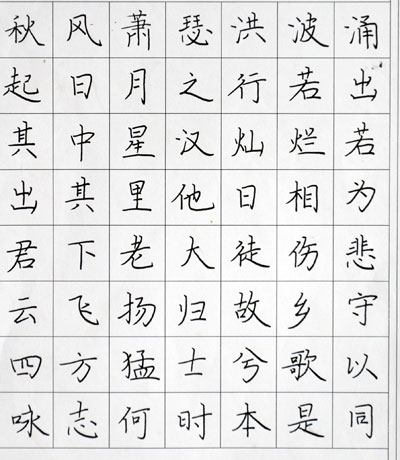 秋风萧瑟洪波涌
起日月之行若出
其中星汉灿烂若
出其里他日相为
君下老大徒伤悲
云飞扬归故乡守
四方猛士兮歌以
咏志何时本是同